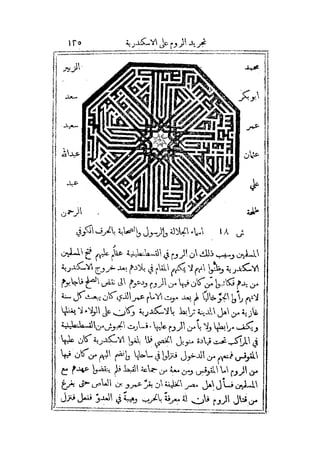 تجريد الروم على الاسكندرية ١٣٥
محمد الزبير
ابوبكر سعد
عمر سعيد
عثمان عبدالله
علي عبد
طلحة الرحمن
ش ١٨ اسماء الجلالة والرسول والصحابة بالحرف الكوفي
المسلمين وسبب ذلك ان الروم في القسطنطينية عظم عليهم فتح المسلمين
الاسكندرية وظنوا انهم لا يمكنهم المقام في بلادهم بعد خروج الاسكندرية
من يدهم فكاتبوا من كان فيها من الروم ودعوهم الى نقض الصلح فاجابوهم
لانهم رأوا الجو خاليًا لهم بعد موت الامام عمر الذي كان يبعث كل سنة
غازية من اهل المدينة ترابط بالاسكندرية وكان على الولاة لا يغفلها
ويكثف مرابطها ولا يأمن الروم عليها. فسارت الجيوش من القسطنطينية
في المراكب تحت قيادة منويل الخصي فلما بلغوا الاسكندرية كان عليها
المقوقس فمنعهم من الدخول فنزلوا في ساحلها وانضم اليهم من كان فيها
من الروم اما المقوقس ومن معه من جماعة القبط فلم ينقضوا عهدهم مع
المسلمين فسأل اهل مصر الخليفة ان يقر عمرو بن العاص حتى يفرغ
من قتال الروم فان له معرفة بالحرب وهيبة في العدو ففعل فنزل